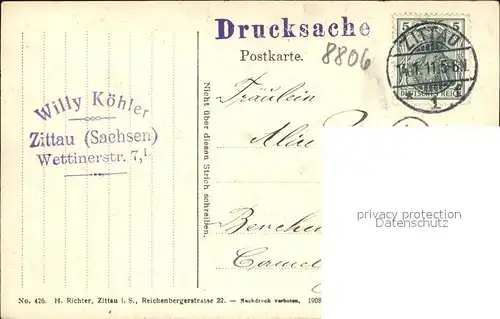 Drucksache
Postkarte.
8806
5 5
ZITTAU
11.5-6
DEUTSCHES REICH
1
Willy Köhler
Zittau (Sachsen)
Wettinerstr. 7,I.
Nicht über diesen Strich schreiben.
Fräulein
privacy protection
Datenschutz
No. 426. H. Richter, Zittau i. S., Reichenbergerstrasse 22. — Nachdruck verboten, 1908